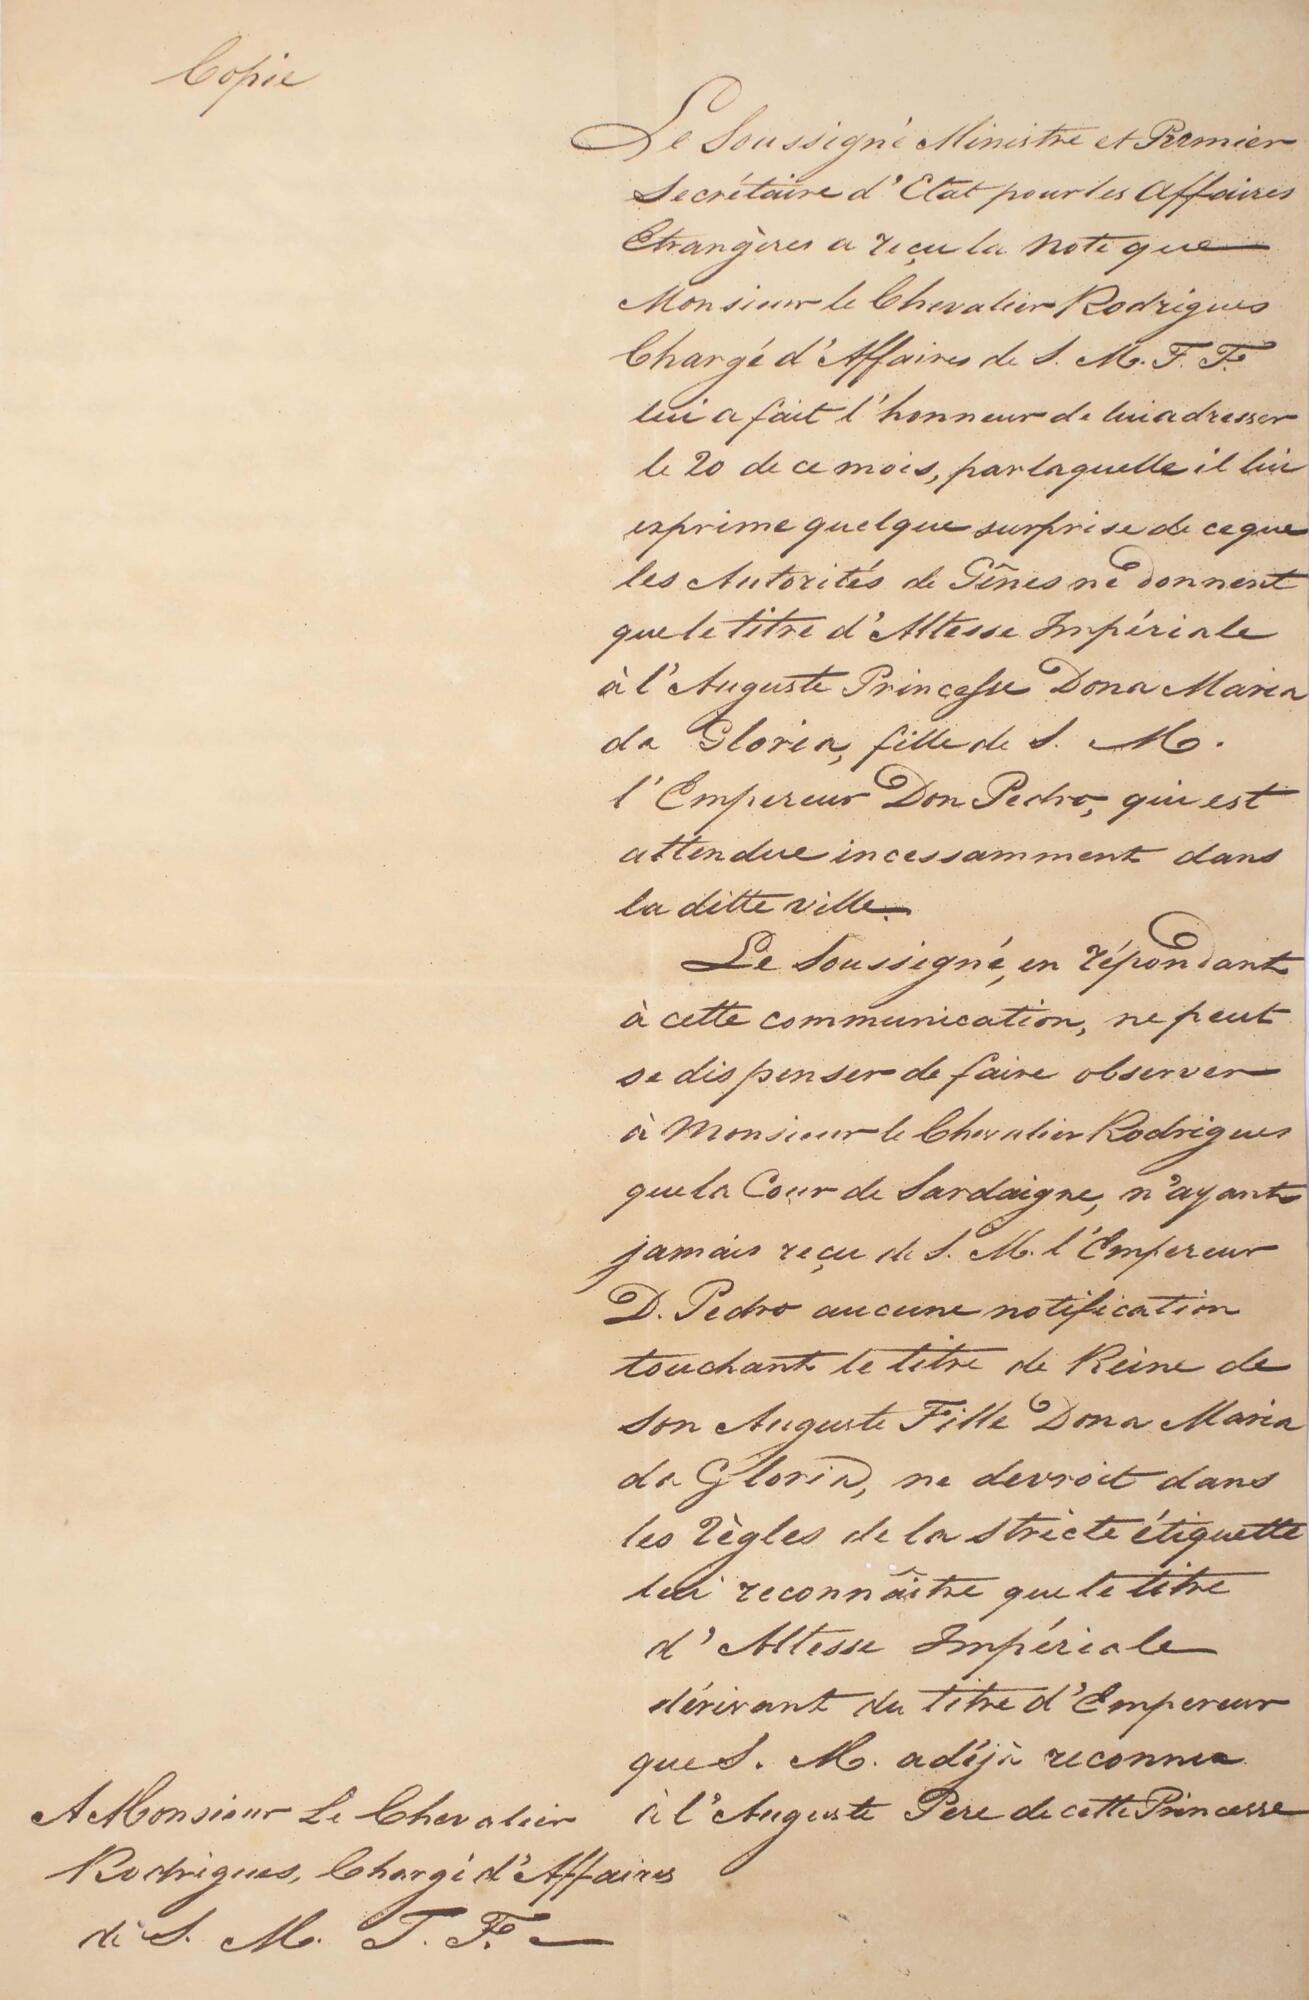 Copie
Le Soussigné Ministre et Premier
Secrétaire d'Etat pour les Affaires
Etrangères a reçu la note que
Monsieur le Chevalier Rodrigues
Chargé d'Affaires de S. M. T. F.
lui a fait l'honneur de lui adresser
le 20 de ce mois, par laquelle il lui
exprime quelque surprise de ce que
les Autorités de Gênes ne donnent
que le titre d'Altesse Impériale
à l'Auguste Princesse Dona Maria
da Gloria, fille de S. M.
l'Empereur Don Pedro, qui est
attendue incessamment dans
la ditte ville.
Le Soussigné, en répondant
à cette communication, ne peut
se dispenser de faire observer
à Monsieur le Chevalier Rodrigues
que la Cour de Sardaigne, n'ayant
jamais reçu de S. M. l'Empereur
D. Pedro aucune notification
touchant le titre de Reine de
son Auguste Fille Dona Maria
da Gloria, ne devroit dans
les règles de la stricte étiquette
lui reconnaître que le titre
d'Altesse Impériale
dérivant du titre d'Empereur
que S. M. a déjà reconnu
à l'Auguste Pere de cette Princesse
A Monsieur Le Chevalier
Rodrigues, Chargé d'Affaires
de S. M. T. F.